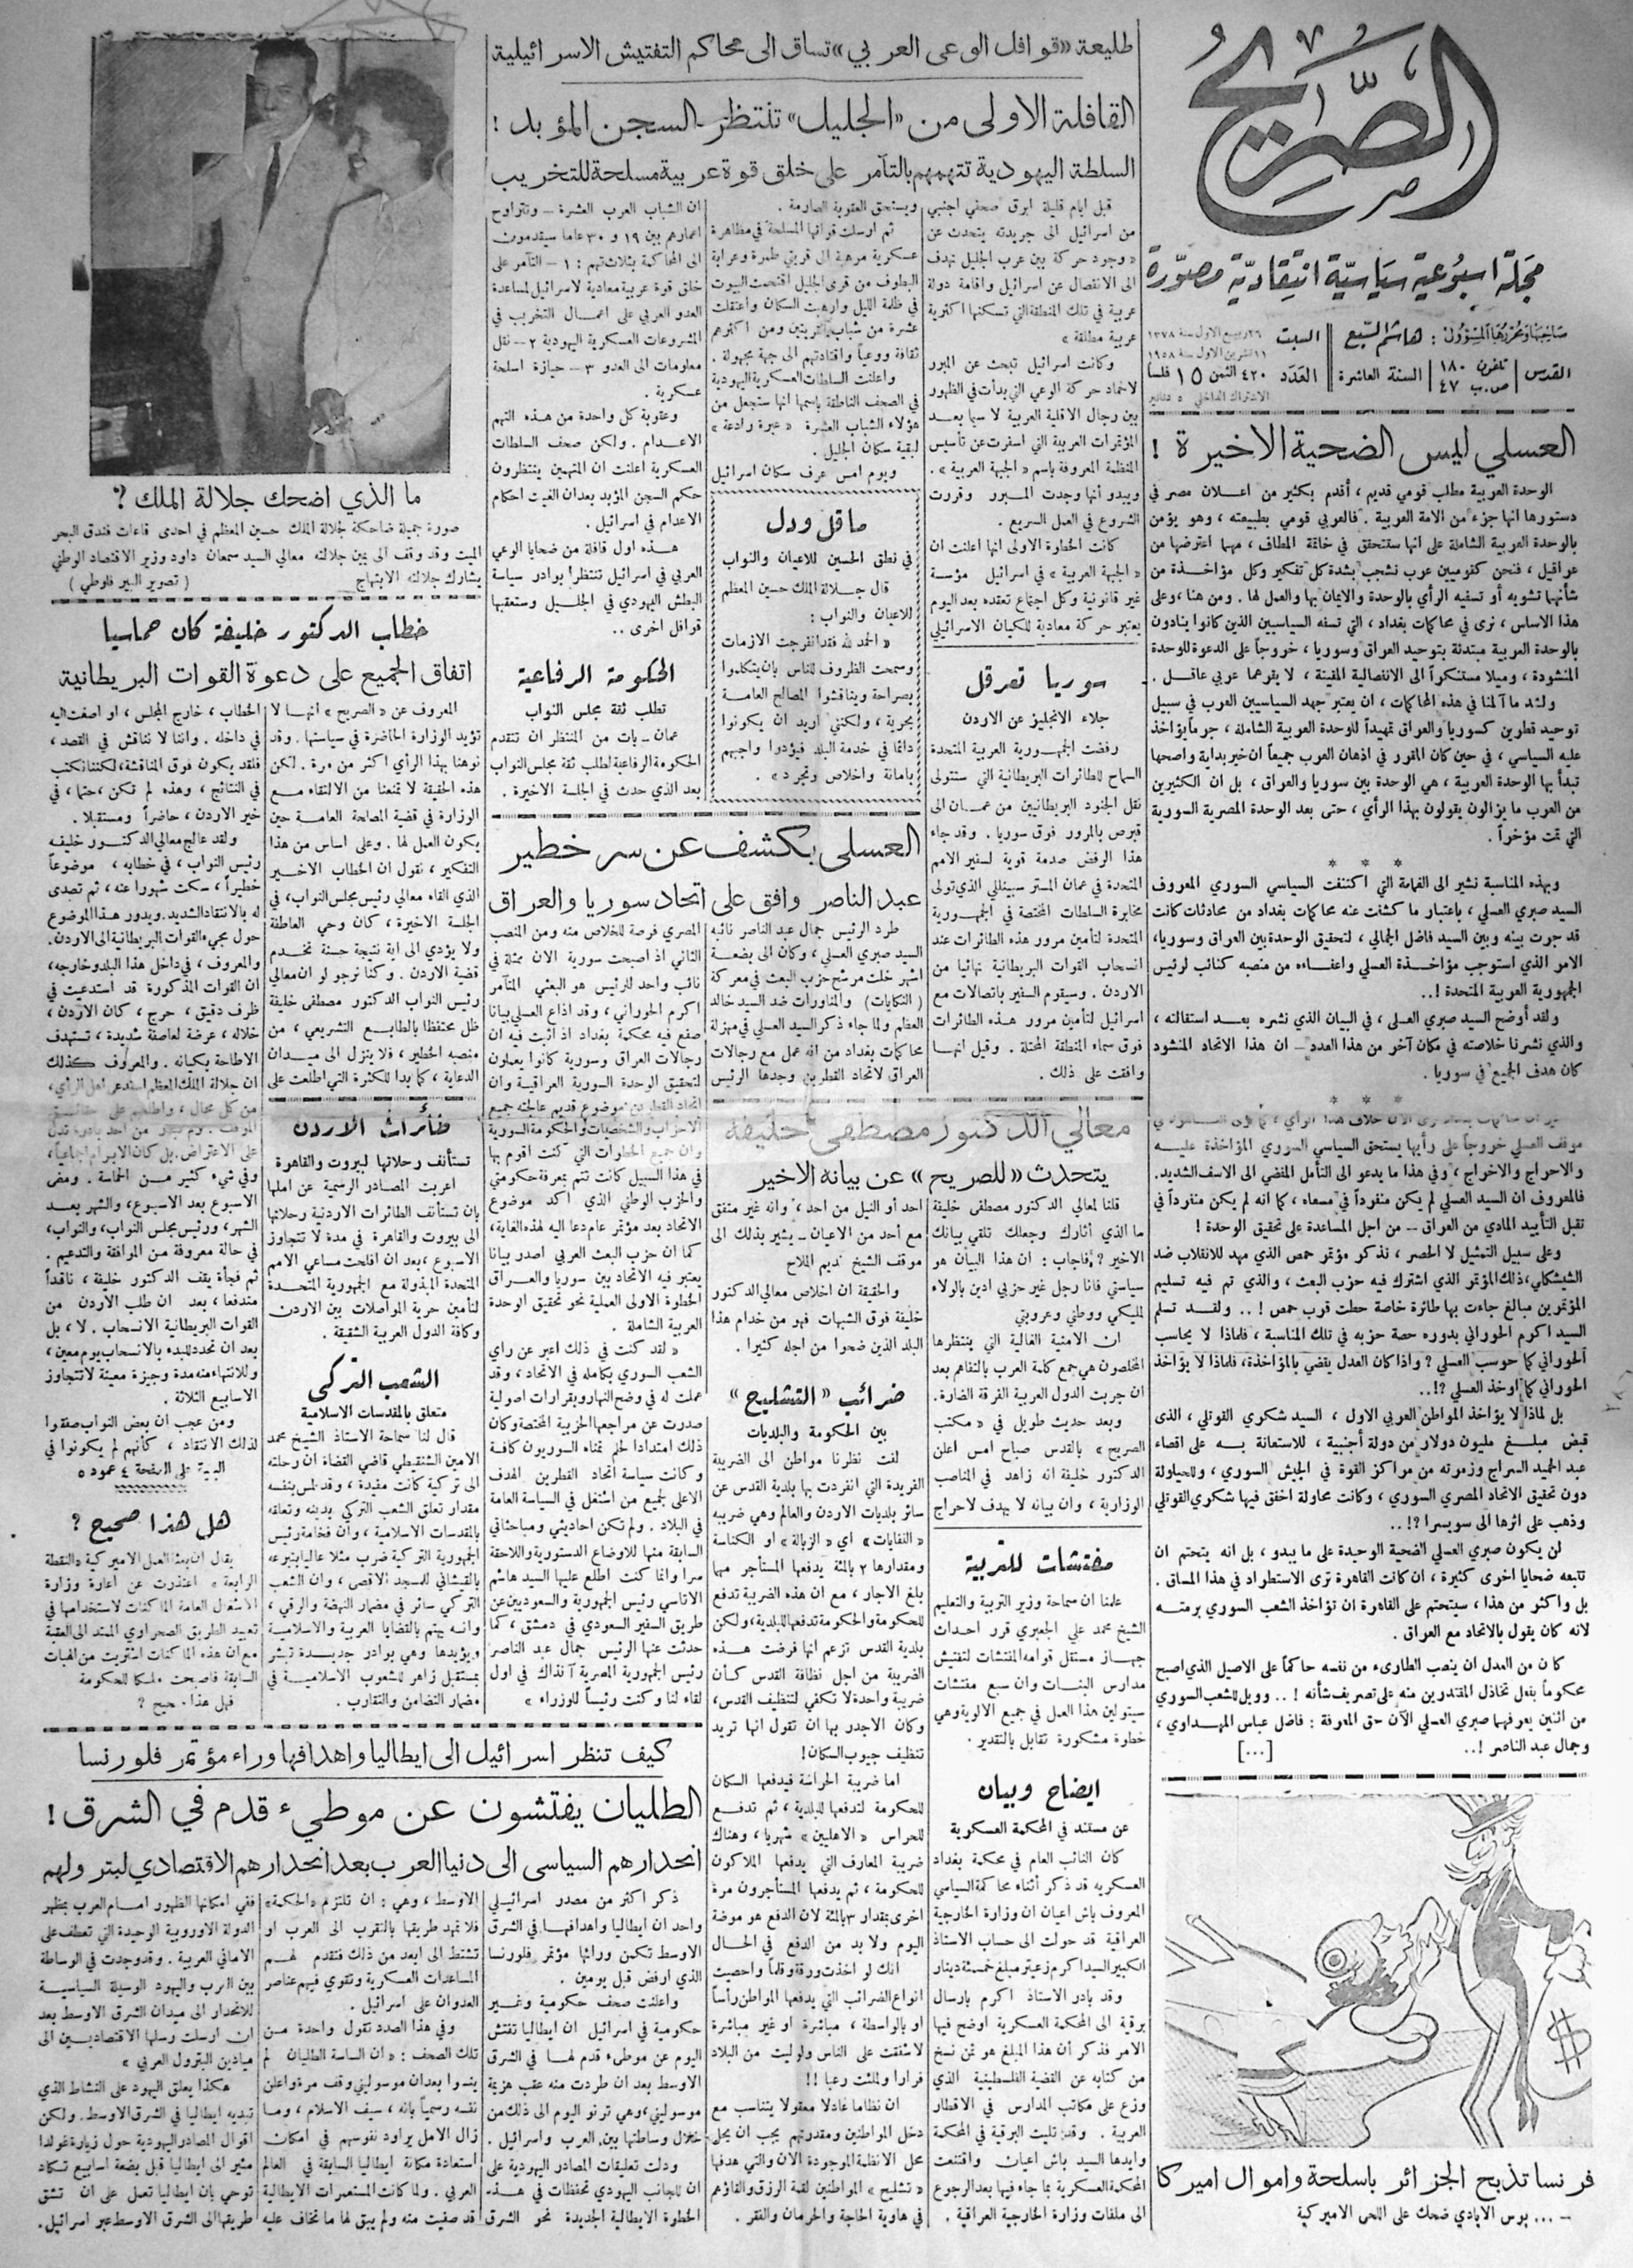 الصريح
مجلة اسبوعية سياسية انتقادية مصورة
صاحبها ومحررها المسؤول : هاشم السبع
السبت
٢٦ ربيع الاول سنة ١٣٧٨
١١ تشرين الاول سنة ١٩٥٨
القدس
تلفون ١٨٠
ص.ب ٤٧
السنة العاشرة
العدد
٤٢٠ الثمن ١٥ فلسا
الاشتراك الداخلي ٥ دنانير
العسلي ليس الضحية الاخيرة !
الوحدة العربية مطلب قومي قديم ، أقدم بكثير من اعلان مصر في
دستورها انها جزء من الامة العربية . فالعربي قومي بطبيعته ، وهو يؤمن
بالوحدة العربية الشاملة على انها ستتحقق في خاتمة المطاف ، مهما اعترضها من
عراقيل ، فنحن كقوميين عرب نشجب بشدة كل تفكير وكل مؤاخذة من
شأنهما تشويه أو تسفيه الرأي بالوحدة والايمان بها والعمل لها . ومن هنا ، وعلى
هذا الاساس ، نرى في محاكمات بغداد ، التي تسفه السياسيين الذين كانوا ينادون
بالوحدة العربية مبتدئة بتوحيد العراق وسوريا ، خروجاً على الدعوة للوحدة
المنشودة ، وميلا مستنكراً الى الانفصالية المقيتة ، لا يقرهما عربي عاقل .
ولشد ما آلمنا في هذه المحاكمات ، ان يعتبر جهد السياسيين العرب في سبيل
توحيد قطرين كسوريا والعراق تمهيداً للوحدة العربية الشاملة ، جرماً يؤاخذ
عليه السياسي ، في حين كان المقرر في اذهان العرب جميعاً ان خير بداية واصحها
تبدأ بها الوحدة العربية ، هي الوحدة بين سوريا والعراق ، بل ان الكثيرين
من العرب ما يزالون يقولون بهذا الرأي ، حتى بعد الوحدة المصرية السورية
التي تمت مؤخراً .
* * *
وبهذه المناسبة نشير الى الغمامة التي اكتنفت السياسي السوري المعروف
السيد صبري العسلي ، باعتبار ما كشفت عنه محاكمات بغداد من محادثات كانت
قد جرت بينه وبين السيد فاضل الجمالي ، لتحقيق الوحدة بين العراق وسوريا ،
الامر الذي استوجب مؤاخذة العسلي واعفاءه من منصبه كنائب لرئيس
الجمهورية العربية المتحدة !..
ولقد أوضح السيد صبري العسلي ، في البيان الذي نشره بعد استقالته ،
والذي نشرنا خلاصته في مكان آخر من هذا العدد – ان هذا الاتحاد المنشود
كان هدف الجميع في سوريا .
* * *
موقف العسلي خروجاً على رأيها يستحق السياسي السوري المؤاخذة عليه
والاحراج والاخراج ، وفي هذا ما يدعو الى التأمل المفضي الى الاسف الشديد.
فالمعروف ان السيد العسلي لم يكن منفرداً في مسعاه ، كما انه لم يكن منفرداً في
تقبل التأييد المادي من العراق – من اجل المساعدة على تحقيق الوحدة !
وعلى سبيل التمثيل لا الحصر ، نذكر مؤتمر حمص الذي مهد للانقلاب ضد
الشيشكلي ، ذلك المؤتمر الذي اشترك فيه حزب البعث ، والذي تم فيه تسليم
المؤتمرين مبالغ جاءت بها طائرة خاصة حطت قرب حمص ! .. ولقد تسلم
السيد اكرم الحوراني بدوره حصة حزبه في تلك المناسبة ، فلماذا لا يحاسب
الحوراني كما حوسب العسلي ؟ واذا كان العدل يقضي بالمؤاخذة ، فلماذا لا يؤاخذ
الحوراني كما اوخذ العسلي ؟!..
بل لماذا لا يؤاخذ المواطن العربي الاول ، السيد شكري القوتلي ، الذي
قبض مبلغ مليون دولار من دولة أجنبية ، للاستعانة به على اقصاء
عبد الحميد السراج وزمرته من مراكز القوة في الجيش السوري ، وللحيلولة
دون تحقيق الاتحاد المصري السوري ، وكانت محاولة اخفق فيها شكري القوتلي
وذهب على اثرها الى سويسرا ؟!..
لن يكون صبري العسلي الضحية الوحيدة على ما يبدو ، بل انه يتحتم ان
تتبعه ضحايا اخرى كثيرة ، ان كانت القاهرة ترى الاستطراد في هذا المساق .
بل واكثر من هذا ، سيتحتم على القاهرة ان تؤاخذ الشعب السوري برمته
لانه كان يقول بالاتحاد مع العراق .
كان من العدل ان ينصب الطارىء من نفسه حاكماً على الاصيل الذي اصبح
محكوماً بفعل تخاذل المقتدرين منه على تصريف شأنه ! .. وويل للشعب السوري
من اثنين يعرفهما صبري العسلي الآن حق المعرفة : فاضل عباس المهداوي ،
وجمال عبد الناصر !..
[...]
فرنسا تذبح الجزائر باسلحة واموال اميركا
– ... بوس الايادي ضحك على اللحى الاميركية
طليعة «قوافل الوعى العربي» تساق الى محاكم التفتيش الاسرائيلية
القافلة الاولى من «الجليل» تنتظر السجن المؤبد !
السلطة اليهودية تتهمهم بالتآمر على خلق قوة عربية مسلحة للتخريب
قبل ايام قليلة ابرق صحفي اجنبي
من اسرائيل الى جريدته يتحدث عن
« وجود حركة بين عرب الجليل تهدف
الى الانفصال عن اسرائيل واقامة دولة
عربية في تلك المنطقة التي تسكنها اكثرية
عربية مطلقة »
وكانت اسرائيل تبحث عن المبرر
لاخماد حركة الوعي التي بدأت في الظهور
بين رجال الاقلية العربية لا سيما بعد
المؤتمرات العربية التي اسفرت عن تأسيس
المنظمة المعروفة باسم « الجبهة العربية » .
ويبدو أنها وجدت المبرر وقررت
الشروع في العمل السريع .
كانت الخطوة الاولى انها اعلنت ان
« الجبهة العربية » في اسرائيل مؤسسة
غير قانونية وكل اجتماع تعقده بعد اليوم
يعتبر حركة معادية للكيان الاسرائيلي
ويستحق العقوبة الصارمة .
ثم ارسلت قواتها المسلحة في مظاهرة
عسكرية مرهبة الى قريتي طمرة وعرابة
البطوف من قرى الجليل اقتحمت البيوت
في ظلمة الليل وارهبت السكان واعتقلت
عشرة من شباب القريتين ومن اكثرهم
ثقافة ووعياً واقتادتهم الى جهة مجهولة .
واعلنت السلطات العسكرية اليهودية
في الصحف الناطقة باسمها انها ستجعل من
هؤلاء الشباب العشرة « عبرة رادعة »
لبقية سكان الجليل .
ويوم امس عرف سكان اسرائيل
ان الشباب العرب العشرة – وتتراوح
اعمارهم بين ١٩ و ٣٠ عاما سيقدمون
الى المحاكمة بثلاث تهم : ١ – التآمر على
خلق قوة عربية معادية لاسرائيل لمساعدة
العدو العربي على اعمال التخريب في
المشروعات العسكرية اليهودية ٢ – نقل
معلومات الى العدو ٣ – حيازة اسلحة
عسكرية .
وعقوبة كل واحدة من هذه التهم
الاعدام . ولكن صحف السلطات
العسكرية اعلنت ان المتهمين ينتظرون
حكم السجن المؤبد بعد ان الغيت احكام
الاعدام في اسرائيل .
هذه اول قافلة من ضحايا الوعي
العربي في اسرائيل تنتظر بوادر سياسة
البطش اليهودي في الجليل وستعقبها
قوافل اخرى ..
ما قل ودل
في نطق الحسين للاعيان والنواب
قال جلالة الملك حسين المعظم
للاعيان والنواب :
« الحمد لله فقد انفرجت الازمات
وسمحت الظروف للناس بان يتكلموا
بصراحة ويناقشوا المصالح العامة
بحرية ، ولكنني اريد ان يكونوا
دائما في خدمة البلد فيؤدوا واجبهم
بامانة واخلاص وتجرد » .
سوريا تعرقل
جلاء الانجليز عن الاردن
رفضت الجمهورية العربية المتحدة
السماح للطائرات البريطانية التي ستتولى
نقل الجنود البريطانيين من عمان الى
قبرص بالمرور فوق سوريا . وقد جاء
هذا الرفض صدمة قوية لسفير الامم
المتحدة في عمان المستر سبينللي الذي تولى
مخابرة السلطات المختصة في الجمهورية
المتحدة لتأمين مرور هذه الطائرات عند
انسحاب القوات البريطانية نهائيا من
الاردن . وسيقوم السفير باتصالات مع
اسرائيل لتأمين مرور هذه الطائرات
فوق سماء المنطقة المحتلة . وقيل انها
وافقت على ذلك .
الحكومة الرفاعية
تطلب ثقة مجلس النواب
عمان – بات من المنتظر ان تتقدم
الحكومة الرفاعية لطلب ثقة مجلس النواب
بعد الذي حدث في الجلسة الاخيرة .
العسلي يكشف عن سر خطير
عبد الناصر وافق على اتحاد سوريا والعراق
طرد الرئيس جمال عبد الناصر نائبه
السيد صبري العسلي ، وكان الى بضعة
اشهر خلت مرشح حزب البعث في معركة
( النكايات ) والمناورات ضد السيد خالد
العظم ولما جاء ذكر السيد العسلي في مهزلة
محاكمات بغداد من انه عمل مع رجالات
العراق لاتحاد القطرين وجدها الرئيس
المصري فرصة للخلاص منه ومن المنصب
الثاني اذ اصبحت سورية الان ممثلة في
نائب واحد للرئيس هو البعثي المتآمر
اكرم الحوراني ، وقد اذاع العسلي بيانا
صفع فيه محكمة بغداد اذ اثبت فيه ان
رجالات العراق وسورية كانوا يعملون
لتحقيق الوحدة السورية العراقية وان
اتحاد القطرين موضوع قديم عالجته جميع
الاحزاب والشخصيات والحكومة السورية
وان جميع الخطوات التي كنت اقوم بها
في هذا السبيل كانت تتم بمعرفة حكومتي
والحزب الوطني الذي اكد موضوع
الاتحاد بعد مؤتمر عام دعا اليه لهذه الغاية ،
كما ان حزب البعث العربي اصدر بيانا
يعتبر فيه الاتحاد بين سوريا والعراق
الخطوة الاولى العملية نحو تحقيق الوحدة
العربية الشاملة .
« لقد كنت في ذلك اعبر عن راي
الشعب السوري بكامله في الاتحاد ، وقد
عملت له في وضح النهار وبقرارات اصولية
صدرت عن مراجعها الحزبية المختصة وكان
ذلك امتدادا لحلم تمناه السوريون كافة
وكانت سياسة اتحاد القطرين الهدف
الاعلى لجميع من اشتغل في السياسة العامة
في البلاد . ولم تكن احاديثي ومباحثاتي
السابقة منها للاوضاع الدستورية واللاحقة
سرا وانما كنت اطلع عليها السيد هاشم
الاتاسي رئيس الجمهورية والسعوديين عن
طريق السفير السعودي في دمشق ، كما
حدثت عنها الرئيس جمال عبد الناصر
رئيس الجمهورية المصرية آنذاك في اول
لقاء لنا وكنت رئيساً للوزراء »
معالي الدكتور مصطفى خليفة
يتحدث «للصريح» عن بيانه الاخير
قلنا لمعالي الدكتور مصطفى خليفة
ما الذي أثارك وجعلك تلقي بيانك
الاخير ؟ فاجاب : ان هذا البيان هو
سياستي فانا رجل غير حزبي ادين بالولاء
لمليكي ووطني وعروبتي
ان الامنية الغالية التي ينتظرها
المخلصون هي جمع كلمة العرب بالتفاهم بعد
ان جربت الدول العربية الفرقة الضارة.
وبعد حديث طويل في « مكتب
الصريح » بالقدس صباح امس اعلن
الدكتور خليفة انه زاهد في المناصب
الوزارية ، وان بيانه لا يهدف لاحراج
احد أو النيل من احد ، وانه غير متفق
مع أحد من الاعيان – يشير بذلك الى
موقف الشيخ نديم الملاح
والحقيقة ان اخلاص معالي الدكتور
خليفة فوق الشبهات فهو من خدام هذا
البلد الذين ضحوا من اجله كثيرا .
ضرائب «التشليح»
بين الحكومة والبلديات
لفت نظرنا مواطن الى الضريبة
الفريدة التي انفردت بها بلدية القدس عن
سائر بلديات الاردن والعالم وهي ضريبه
« النفايات » اي « الزبالة » او الكناسة
ومقدارها ٢ بالمئة يدفعها المستأجر مهما
بلغ الاجار ، مع ان هذه الضريبة تدفع
للحكومة والحكومة تدفعها للبلدية ، ولكن
بلدية القدس تزعم انها فرضت هذه
الضريبة من اجل نظافة القدس كأن
ضريبة واحدة لا تكفي لتنظيف القدس ،
وكان الاجدر بها ان تقول انها تريد
تنظيف جيوب السكان !
اما ضريبة الحراسة فيدفعها السكان
للحكومة لتدفعها للبلدية ، ثم تدفع
للحراس « الاهليين » شهريا ، وهناك
ضريبة المعارف التي يدفعها الملاكون
للحكومة ، ثم يدفعها المستأجرون مرة
اخرى بمقدار ٣ بالمئة لان الدفع هو موضة
اليوم ولا بد من الدفع في الحال
انك لو اخذت ورقة وقلماً واحصيت
انواع الضرائب التي يدفعها المواطن رأساً
او بالواسطة ، مباشرة او غير مباشرة
لاشفقت على الناس ولوليت من البلاد
فرارا ولملئت رعبا !!
ان نظاما عادلا معقولا يتناسب مع
دخل المواطنين ومقدرتهم يجب ان يحل
محل الانظمة الموجودة الان والتي هدفها
« تشليح » المواطنين لقمة الرزق والقاؤهم
في هاوية الحاجة والحرمان والفقر .
مفتشات للتربية
علمنا ان سماحة وزير التربية والتعليم
الشيخ محمد علي الجعبري قرر احداث
جهاز مستقل قوامه المفتشات لتفتيش
مدارس البنات وان سبع مفتشات
سيتولين هذا العمل في جميع الالوية وهي
خطوة مشكورة تقابل بالتقدير .
ايضاح وبيان
عن مستند في المحكمة العسكرية
كان النائب العام في محكمة بغداد
العسكريه قد ذكر أثناء محاكمة السياسي
المعروف باش اعيان ان وزارة الخارجية
العراقية قد حولت الى حساب الاستاذ
الكبير السيد اكرم زعيتر مبلغ خمسمئة دينار
وقد بادر الاستاذ اكرم بارسال
برقية الى المحكمة العسكرية اوضح فيها
الامر فذكر أن هذا المبلغ هو ثمن نسخ
من كتابه عن القضية الفلسطينية الذي
وزع على مكاتب المدارس في الاقطار
العربية . وقد تليت البرقية في المحكمة
وايدها السيد باش اعيان واقتنعت
المحكمة العسكرية بما جاء فيها بعد الرجوع
الى ملفات وزارة الخارجية العراقية .
ما الذي اضحك جلالة الملك ؟
صورة جميلة ضاحكة لجلالة الملك حسين المعظم في احدى قاعات فندق البحر
الميت وقد وقف الى يمين جلالته معالي السيد سمعان داود وزير الاقتصاد الوطني
يشارك جلالته الابتهاج ( تصوير البير فلوطي )
خطاب الدكتور خليفة كان حماسيا
اتفاق الجميع على دعوة القوات البريطانية
المعروف عن « الصريح » انها لا
تؤيد الوزارة الحاضرة في سياستها . وقد
نوهنا بهذا الرأي اكثر من مرة . لكن
هذه الحقيقة لا تمنعنا من الالتقاء مع
الوزارة في قضية المصلحة العامة حين
يكون العمل لها . وعلى اساس من هذا
التفكير ، نقول ان الخطاب الاخير
الذي القاه معالي رئيس مجلس النواب ، في
الجلسة الاخيرة ، كان وحي العاطفة
ولا يؤدي الى اية نتيجة حسنة تخدم
قضية الاردن . وكنا نرجو لو ان معالي
رئيس النواب الدكتور مصطفى خليفة
ظل محتفظا بالطابع التشريعي ، من
منصبه الخطير ، فلا ينزل الى ميدان
الدعاية ، كما بدا للكثرة التي اطلعت على
الخطاب ، خارج المجلس ، او اصغت اليه
في داخله . واننا لا نناقش في القصد ،
فلقد يكون فوق المناقشة ، لكننا نكتب
في النتائج ، وهذه لم تكن ، حتما ، في
خير الاردن ، حاضراً ومستقبلا .
ولقد عالج معالي الدكتور خليفه
رئيس النواب ، في خطابه ، موضوعاً
خطيراً ، سكت شهورا عنه ، ثم تصدى
له بالانتقاد الشديد . ويدور هذا الموضوع
حول مجيء القوات البريطانية الى الاردن.
والمعروف ، في داخل هذا البلد وخارجه ،
ان القوات المذكورة قد استدعيت في
ظرف دقيق ، حرج ، كان الاردن ،
خلاله ، عرضة لعاصفة شديدة ، تستهدف
الاطاحة بكيانه . والمعروف كذلك
ان جلالة الملك المعظم استدعى اهل الرأي ،
على الاعتراض. بل كان الابرام اجماعياً ،
وفي شيء كثير من الحماسة . ومضى
الاسبوع بعد الاسبوع ، والشهر بعد
الشهر ، ورئيس مجلس النواب ، والنواب ،
في حالة معروفة من الموافقة والتدعيم .
ثم فجأة يقف الدكتور خليفة ، ناقداً
مندفعا ، بعد ان طلب الاردن من
القوات البريطانية الانسحاب . لا ، بل
بعد ان تحدد للبدء بالانسحاب يوم معين ،
وللانتهاء منه مدة وجيزة معينة لا تتجاوز
الاسابيع الثلاثة .
ومن عجب ان بعض النواب صفقوا
لذلك الانتقاد ، كأنهم لم يكونوا في
البقية على الصفحة ٤ عمود ٥
طائرات الاردن
تستأنف رحلاتها لبيروت والقاهرة
اعربت المصادر الرسمية عن املها
بان تستأنف الطائرات الاردنية رحلاتها
الى بيروت والقاهرة في مدة لا تتجاوز
الاسبوع ، بعد ان افلحت مساعي الامم
المتحدة المبذولة مع الجمهورية المتحدة
لتأمين حرية المواصلات بين الاردن
وكافة الدول العربية الشقيقة .
الشعب التركي
متعلق بالمقدسات الاسلامية
قال لنا سماحة الاستاذ الشيخ محمد
الامين الشنقيطي قاضي القضاة ان رحلته
الى تركية كانت مفيدة ، وقد لمس بنفسه
مقدار تعلق الشعب التركي بدينه وتعلقه
بالمقدسات الاسلامية ، وان فخامة رئيس
الجمهورية التركية ضرب مثلا عاليا بتبرعه
بالقيشاني للمسجد الاقصى ، وان الشعب
التركي سائر في مضمار النهضة والرقي ،
وانه يهتم بالقضايا العربية والاسلامية
ويؤيدها وهي بوادر جديدة تبشر
بمستقبل زاهر للشعوب الاسلامية في
مضمار التضامن والتقارب .
هل هذا صحيح ؟
يقال ان بعثة العمل الاميركية « النقطة
الرابعة » اعتذرت عن اعارة وزارة
الاشغال العامة الماكنات لاستخدامها في
تعبيد الطريق الصحراوي الممتد الى العقبة
مع ان هذه الماكنات اشتريت من الهبات
السابقة فاصبحت ملكا للحكومة
فهل هذا صحيح ؟
كيف تنظر اسرائيل الى ايطاليا واهدافها وراء مؤتمر فلورنسا
الطليان يفتشون عن موطيء قدم في الشرق !
انحدارهم السياسي الى دنيا العرب بعد انحدارهم الاقتصادي لبترولهم
ذكر اكثر من مصدر اسرائيلي
واحد ان ايطاليا واهدافها في الشرق
الاوسط تكمن وراء مؤتمر فلورنسا
الذي ارفض قبل يومين .
واعلنت صحف حكومية وغير
حكومية في اسرائيل ان ايطاليا تفتش
اليوم عن موطىء قدم لها في الشرق
الاوسط بعد ان طردت منه عقب هزيمة
موسوليني ، وهي ترنو اليوم الى ذلك من
خلال وساطتها بين العرب واسرائيل .
ودلت تعليقات المصادر اليهودية على
ان للجانب اليهودي تحفظات في هذه
الخطوة الايطالية الجديدة نحو الشرق
الاوسط ، وهي : ان تلتزم « الحكمة »
فلا تمهد طريقها بالتقرب الى العرب او
تشتط الى ابعد من ذلك فتقدم لهم
المساعدات العسكرية وتقوي فيهم عناصر
العدوان على اسرائيل .
وفي هذا الصدد تقول واحدة من
تلك الصحف : « ان الساسة الطليان لم
ينسوا بعد ان موسوليني وقف مرة واعلن
نفسه رسمياً بانه ، سيف الاسلام ، وما
زال الامل يراود نفوسهم في امكان
استعادة مكانة ايطاليا السابقة في العالم
العربي . ولما كانت المستعمرات الايطالية
قد صفيت منه ولم يبق لها ما تخاف عليه
ففي امكانها الظهور امام العرب بمظهر
الدولة الاوروبية الوحيدة التي تعطف على
الاماني العربية . وقد وجدت في الوساطة
بين العرب واليهود الوسيلة السياسية
للانحدار الى ميدان الشرق الاوسط بعد
ان ارسلت رسلها الاقتصاديين الى
ميادين البترول العربي »
هكذا يعلق اليهود على النشاط الذي
تبديه ايطاليا في الشرق الاوسط . ولكن
اقوال المصادر اليهودية حول زيارة غولدا
مئير الى ايطاليا قبل بضعة اسابيع تكاد
توحي بان ايطاليا تعمل على ان تشق
طريقها الى الشرق الاوسط عبر اسرائيل .